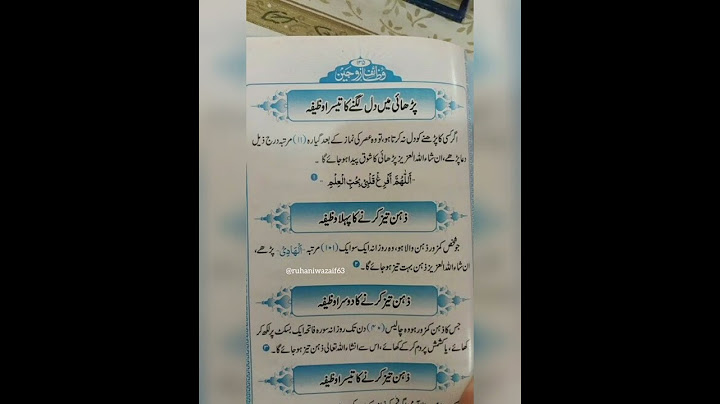 ۱۳۵
وظائف زوجین
پڑھائی میں دل لگنے کا تیسرا وظیفہ
اگر کسی کا پڑھنے کو دل نہ کرتا ہو، تو وہ عصر کی نماز کے بعد گیارہ (۱۱) مرتبہ درج ذیل
دعا پڑھے، ان شاء اللہ العزیز پڑھائی کا شوق پیدا ہو جائے گا۔
اَللّٰهُمَّ اَفْرِغْ قَلْبِیْ بِحُبِّ الْعِلْمِ
ذہن تیز کرنے کا پہلا وظیفہ
جو شخص کمزور ذہن والا ہو، وہ روزانہ ایک سو ایک (۱۰۱) مرتبہ اَلْهَادِیُ پڑھے،
ان شاء اللہ العزیز ذہن بہت تیز ہو جائے گا۔ ۲
@ruhaniwazaif63
ذہن تیز کرنے کا دوسرا وظیفہ
جس کا ذہن کمزور ہو وہ چالیس (۴۰) دن تک روزانہ سورہ فاتحہ ایک بسکٹ پر لکھ کر
کھائے، یا کشمش پر دم کر کے کھائے، اس سے انشاء اللہ تعالی ذہن تیز ہو جائے گا۔ ۳
ذہن تیز کرنے کا تیسرا وظیفہ